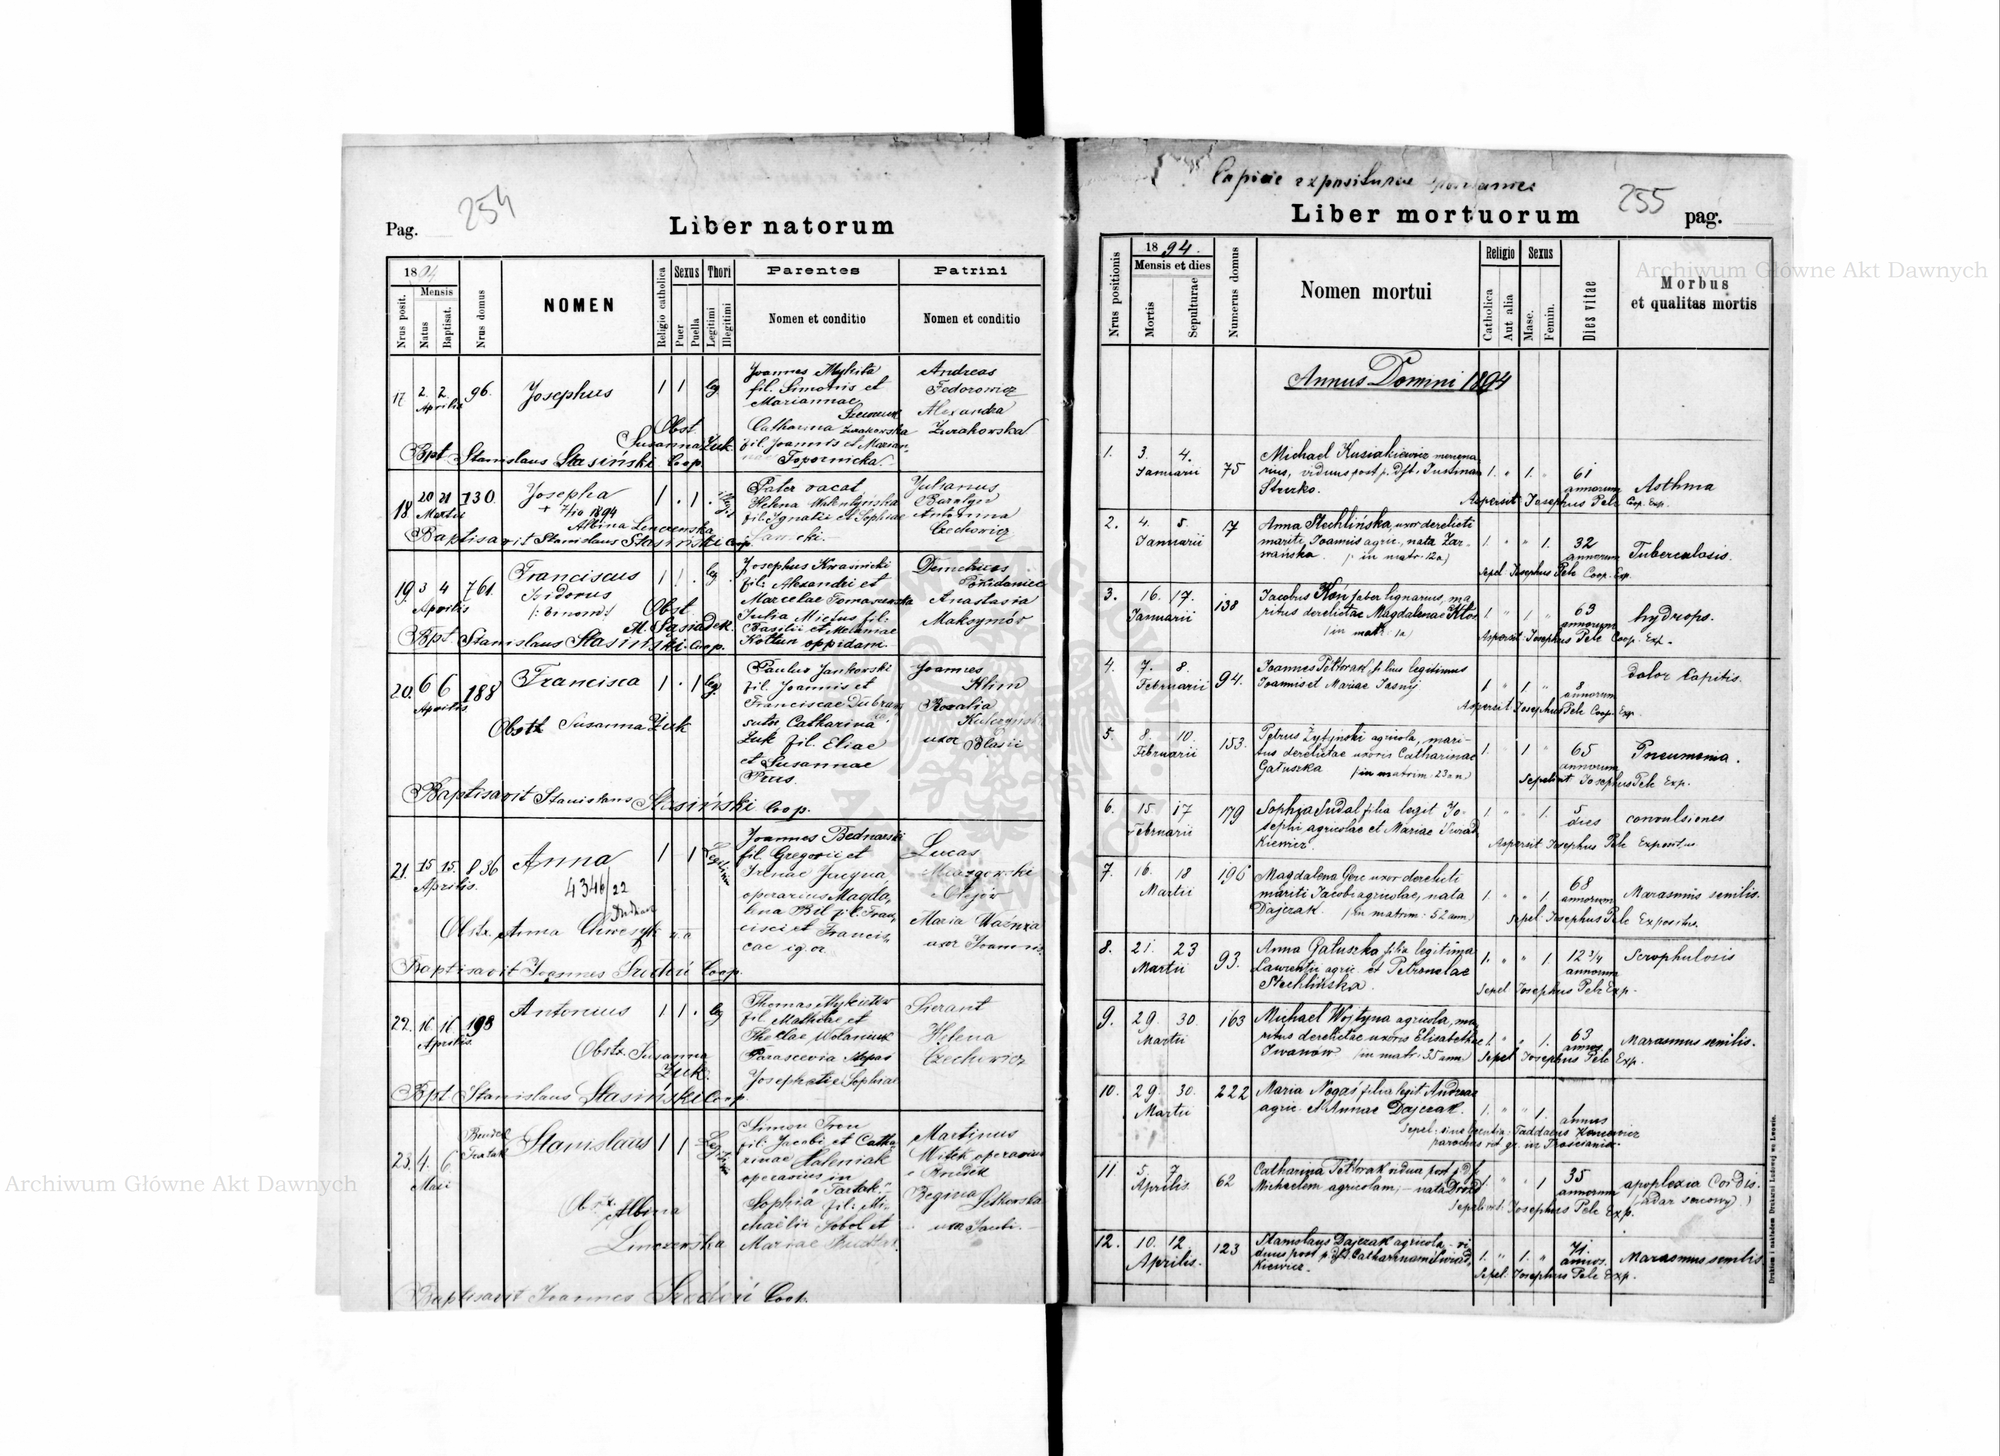 Pag. 254
Liber natorum
1894
Nrus posit.
Mensis
Natus
Baptisat.
Nrus domus
NOMEN
Religio catholica
Sexus
Puer
Puella
Thori
Legitimi
Illegitimi
Parentes
Nomen et conditio
Patrini
Nomen et conditio
17 2. 2. Aprilis 96. Josephus 1 1 leg
Joannes Mykita
fil. Simonis et
Mariannae
Catharina Żurakowska
fil. Joannis et Marian-
Topornicka
Andreas
Fedorowicz
Alexandra
Żurakowska
Obst. Susanna Żuk
Bpt Stanislaus Stasiński Coop.
18 20 21 Martii 130. Josepha 1 . 1
+ 7/10 1894
Albina Lenczewska
Pater vacat
Helena
fil. Ignatii et Sophiae
Julianus
Baralyn
Antonina
Czechowicz
Baptisavit Stanislaus Stasiński Coop.
19. 3 4 Aprilis 761. Franciscus 1 1 . leg
Isidorus
(: binom :)
Josephus Kwasnicki
fil: Alexandri et
Marcelae Tomaszewska
Julia Mictus fil:
Basilii et Melaniae
Koltun oppidani.
Demetrius
Anastasia
Maksymów
Obst. M. Sasiadek.
Bpt. Stanislaus Stasiński Coop.
20. 6 6 Aprilis 188 Francisca 1 . 1 leg
Paulus Jankowski
fil. Joannis et
Franciscae
sutor Catharina
Żuk fil. Eliae
et Susannae
Joannes
Klim
Rosalia
uxor Blasii
Obstx Susanna Żuk
Baptisavit Stanislaus Stasiński Coop.
21. 15 15. Aprilis. 836 Anna 1 1 Legitimi
4346/22
Joannes Bednarski
fil. Gregorii et
Irenae Jacyna,
operarius Magda-
lena Bil fil. Fran-
cisci et Francis-
cae
Lucas
Olejów
Maria Woźnica
uxor Joannis.
Obstx. Anna
Baptisavit Joannes Coop.
22. 16. 16. Aprilis. 198 Antonius 1 1 . leg
Thomas Mykietów
fil. Mathiae et
Theclae
Parascevia
Josephatie Sophiae
Sierant
Helena
Czechowicz
Obstx. Susanna
Żuk.
Bpt Stanislaus Stasiński Coop.
23. 4. 6 Maii Stanislaus 1 1 Legitimi
Simon
fil: Jacobi et Catha-
rinae Holeniak
operarius in
"Tartak"
Sophia fil: Mi-
chaelis Sobol et
Mariae
Martinus
Witek operarius
Regina
Obstx. Albina
Lenczewska
Baptisavit Joannes Coop.
Copiae expositurae
Liber mortuorum
255 pag.
Nrus positionis
1894.
Mensis et dies
Mortis
Sepulturae
Numerus domus
Nomen mortui
Religio
Catholica
Aut alia
Sexus
Masc.
Femin.
Dies vitae
Morbus
et qualitas mortis
Annus Domini 1894
1. 3. 4. Januarii 75 Michael Kusiakiewicz
viduus post p. Dft. Justinam
Struzko. 1. " 1. " 61 annorum Asthma
Aspersit Josephus Pelc Coop. Exp.
2. 4. 5. Januarii 17 Anna Stechlińska, uxor derelicti
mariti Joannis agric. nata Zar-
wańska (: in matr. 12a) 1. " " 1. 32 annorum Tuberculosis.
Sepel Josephus Pelc Coop. Exp.
3. 16. 17. Januarii 138 Jacobus Koń faber lignarius, ma-
ritus derelictae Magdalenae Kłos
(in matr. 1a) 1 " 1 " 63 annorum hydrops.
Aspersit Josephus Pelc Coop. Exp.
4. 7. 8. Februarii 94. Joannes Półtorak filius legitimus
Joannis et Mariae Jasnij 1 " 1 " 8 annorum dolor Capitis.
Aspersit Josephus Pelc Coop. Exp.
5. 8. 10. Februarii 153. Petrus Żytyński agricola, mari-
tus derelictae uxoris Catharinae
Gałuszka (in matrim. 23 an) 1. 1 " 65 annorum Pneumonia.
Sepelivit Josephus Pelc Exp.
6. 15 17 Februarii 179 Sophia Sudal filia legit Jo-
sephi agricolae et Mariae Surad-
kiewicz. 1. " " 1. 5 dies convulsiones
Aspersit Josephus Pelc Expositus
7. 16. 18 Martii 196 Magdalena Gorc uxor derelicti
mariti Jacobi agricolae, nata
Dajczak. (in matrim. 52 ann) 1. " " 1 68 annorum Marasmus senilis.
Sepel. Josephus Pelc Expositus.
8. 21. 23 Martii 93. Anna Gałuszka filia legitima
Laurentii agric. et Petronelae
Stechlińska. 1. " " 1. 12 3/4 annorum Scrophulosis
Sepel Josephus Pelc Exp.
9. 29. 30. Martii 163 Michael Wojtyna agricola, ma-
ritus derelictae uxoris Elisabethae
Iwanów (in matr. 35 ann) 1. " " 1. 63 annos Marasmus senilis.
Sepel Josephus Pelc Exp.
10. 29. 30. Martii 222 Maria Nogaś filia legit Andreae
agric. et Annae Dajczak. 1. " " 1. annus
Sepel: sine licentia: Taddaeus
parochus rit. gr. in Trościaniec
11. 5. 7. Aprilis 62 Catharina Półtorak vidua post p. Dft
Michaelem agricolam, - nata Drozd 1. " " 1 35 annorum apoplexia Cordis.
(udar sercowy)
Sepelivit: Josephus Pelc Exp.
12. 10. 12. Aprilis. 123 Stanislaus Dajczak agricola - vi-
duus post p. Dft. Catharinam Siwiad-
kiewicz. 1. " 1. " 71. annos. Marasmus senilis
Sepel: Josephus Pelc Exp.
Drukiem i nakładem Drukarni Ludowej we Lwowie.
Archiwum Główne Akt Dawnych
Archiwum Główne Akt Dawnych